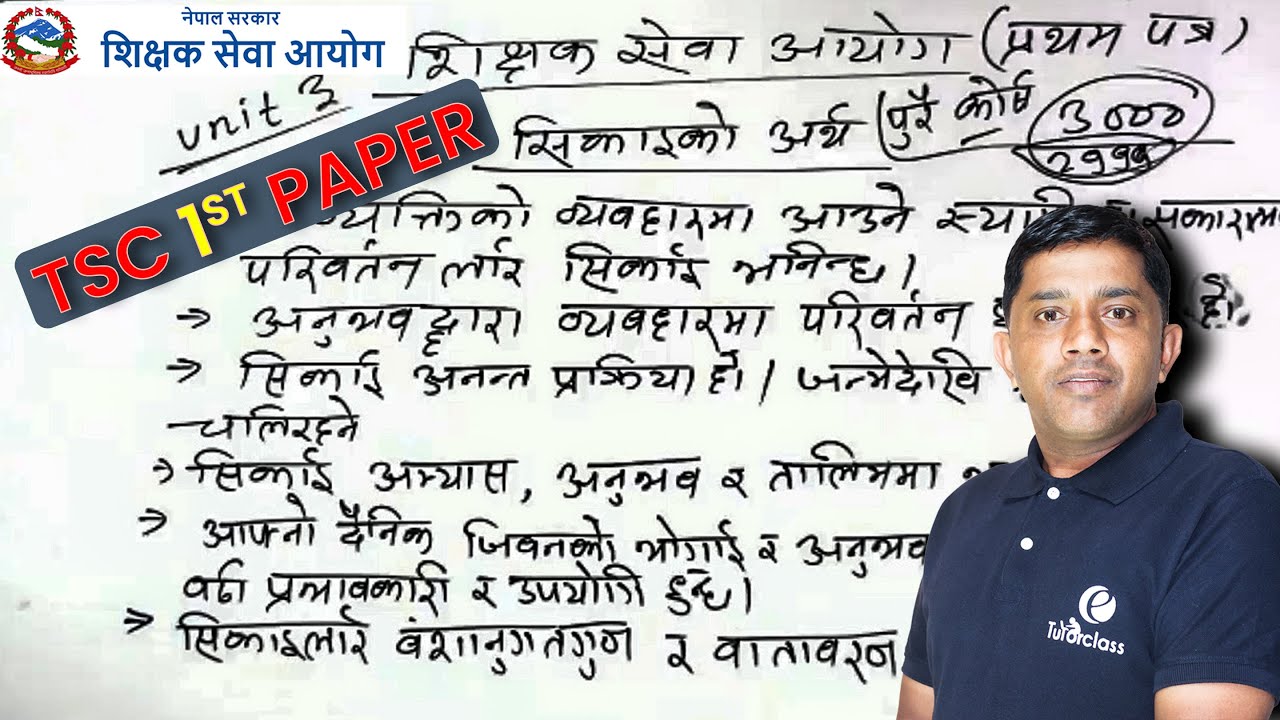 नेपाल सरकार
शिक्षक सेवा आयोग
शिक्षक सेवा आयोग (प्रथम पत्र)
unit 3
सिकाइको अर्थ (पुरै कोर्ष 3000
2999
TSC 1ST PAPER
व्यक्तिको व्यवहारमा आउने
परिवर्तन लाई सिकाई भनिन्छ।
→ अनुभवद्वारा व्यवहारमा परिवर्तन हो।
→ सिकाई अनन्त प्रक्रिया हो। जन्मेदेखि
चलिरहने
→ सिकाई अभ्यास, अनुभव र तालिममा
→ आफ्नो दैनिक जिवनको भोगाई र अनुभव
बढी प्रभावकारी र उपयोगी हुन्छ।
→ सिकाइलाई वंशानुगतगुण र वातावरण
e
Tutorclass